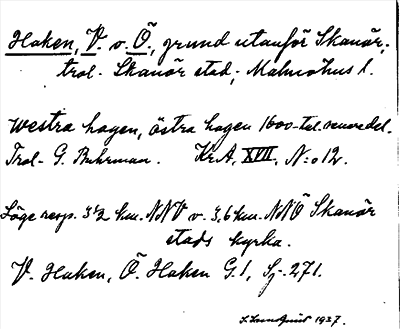 Haken, V. o. Ö., grund utanför Skanör,
trol. Skanör stad, Malmöhus l.
Westra hagen, östra hagen 1600-tal. senare del.
Trol. G. Buhrman. Kr.A, XVII, N:o 12.
Läge resp. 3½ km. NNV o. 3,6 km. NNÖ Skanör
stads kyrka.
V. Haken, Ö. Haken G.1, Sj. 271.
Lundquist 1937.